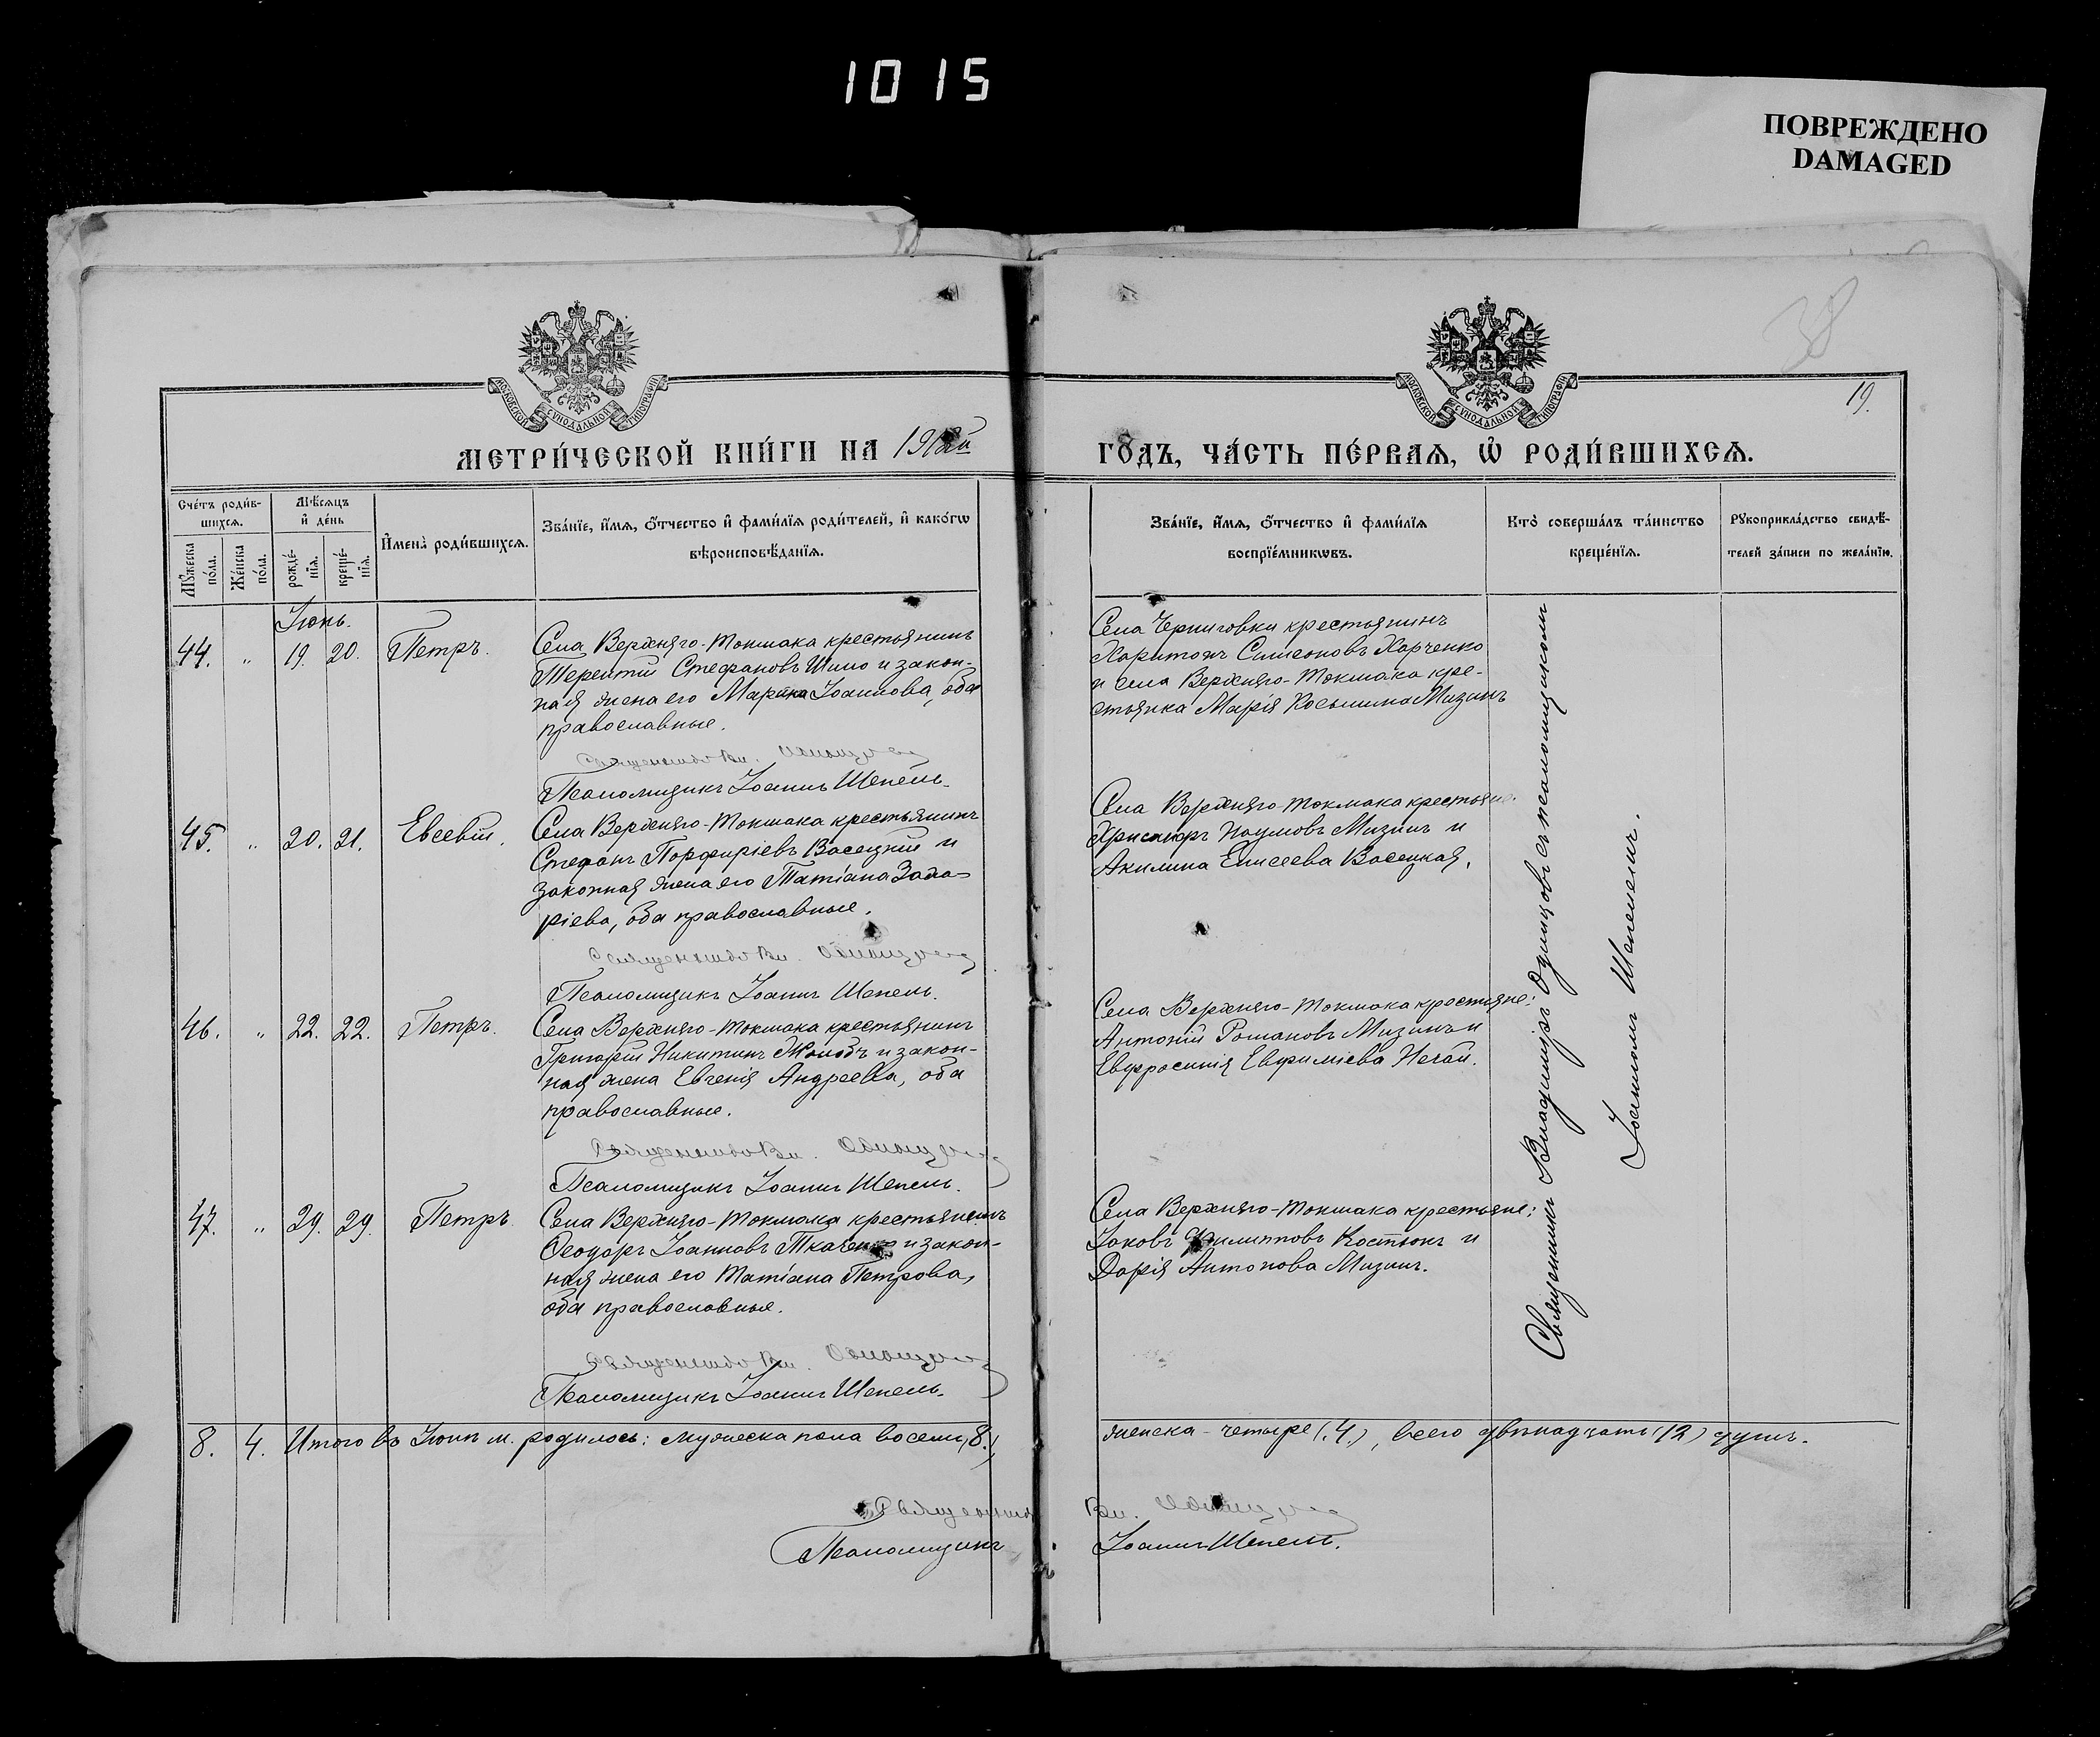 1015
ПОВРЕЖДЕНО
DAMAGED
38
19.
МОСКОВСКОЙ СУНОДАЛЬНОЙ ТИПОГРАФІИ
МОСКОВСКОЙ СУНОДАЛЬНОЙ ТИПОГРАФІИ
МЕТРИ́ЧЕСКОЙ КНИ́ГИ НА 1912й
ГО́ДЪ, ЧА́СТЬ ПЕ́РВАѦ, Ѡ҆ РОДИ́ВШИХСѦ.
Сче́тъ роди́в-
шихсѧ.
Мꙋ́жеска по́ла.
Же́нска по́ла.
Мѣ́сѧцъ
и҆ де́нь
рожде́-
нїѧ.
креще́-
нїѧ.
И҆мена̀ роди́вшихсѧ.
Зва́нїе, и҆́мѧ, ѻ҆́тчество и҆ фами́лїѧ роди́телей, и҆ како́гѡ
вѣроисповѣ́данїѧ.
Зва́нїе, и҆́мѧ, ѻ҆́тчество и҆ фами́лїѧ
воспрїе́мникѡвъ.
Кто̀ соверша́лъ та́инство
креще́нїѧ.
Рꙋкоприкла́дство свидѣ́-
телей за́писи по жела́нїю.
Іюнь.
44. " 19. 20. Петръ.
Села Верхняго-Токмака крестьянинъ
Терентій Стефановъ Шило и закон-
ная жена его Марина Іоаннова, оба
православные.
Священникъ Вл. Одинцовъ
Псаломщикъ Іоаннъ Шепель.
Села Черниговки крестьянинъ
Харитонъ Симеоновъ Харченко
и села Верхняго-Токмака кре-
стьянка Марія Косьмина Мизинъ
45. " 20. 21. Евсевій.
Села Верхняго-Токмака крестьянинъ
Стефанъ Порфиріевъ Васецкій и
законная жена его Татіана Заха-
ріева, оба православные.
Священникъ Вл. Одинцовъ
Псаломщикъ Іоаннъ Шепель.
Села Верхняго-Токмака крестьяне:
Наумовъ Мизинъ и
Акилина Елисеева Васецкая.
46. " 22. 22. Петръ.
Села Верхняго-Токмака крестьянинъ
Григорій Никитинъ Жолобъ и закон-
ная жена Евгенія Андреева, оба
православные.
Священникъ Вл. Одинцовъ
Псаломщикъ Іоаннъ Шепель.
Села Верхняго-Токмака крестьяне:
Антоній Романовъ Мизинъ и
Евфросинія Евфиміева Нечай.
47. " 29. 29. Петръ.
Села Верхняго-Токмака крестьянинъ
Ѳеодоръ Іоанновъ Ткаченко и закон-
ная жена его Татіана Петрова,
оба православные.
Священникъ Вл. Одинцовъ
Псаломщикъ Іоаннъ Шепель.
Села Верхняго-Токмака крестьяне:
Іаковъ Филипповъ Костюкъ и
Дарія Антонова Мизинъ.
Священникъ Владимиръ Одинцовъ съ псаломщикомъ
Іоанномъ Шепелемъ.
8. 4. Итого въ Іюнѣ м. родилось: мужеска пола восемь (8.),
женска - четыре (4.), всего двѣнадцать (12) душъ.
Священникъ Вл. Одинцовъ
Псаломщикъ Іоаннъ Шепель.